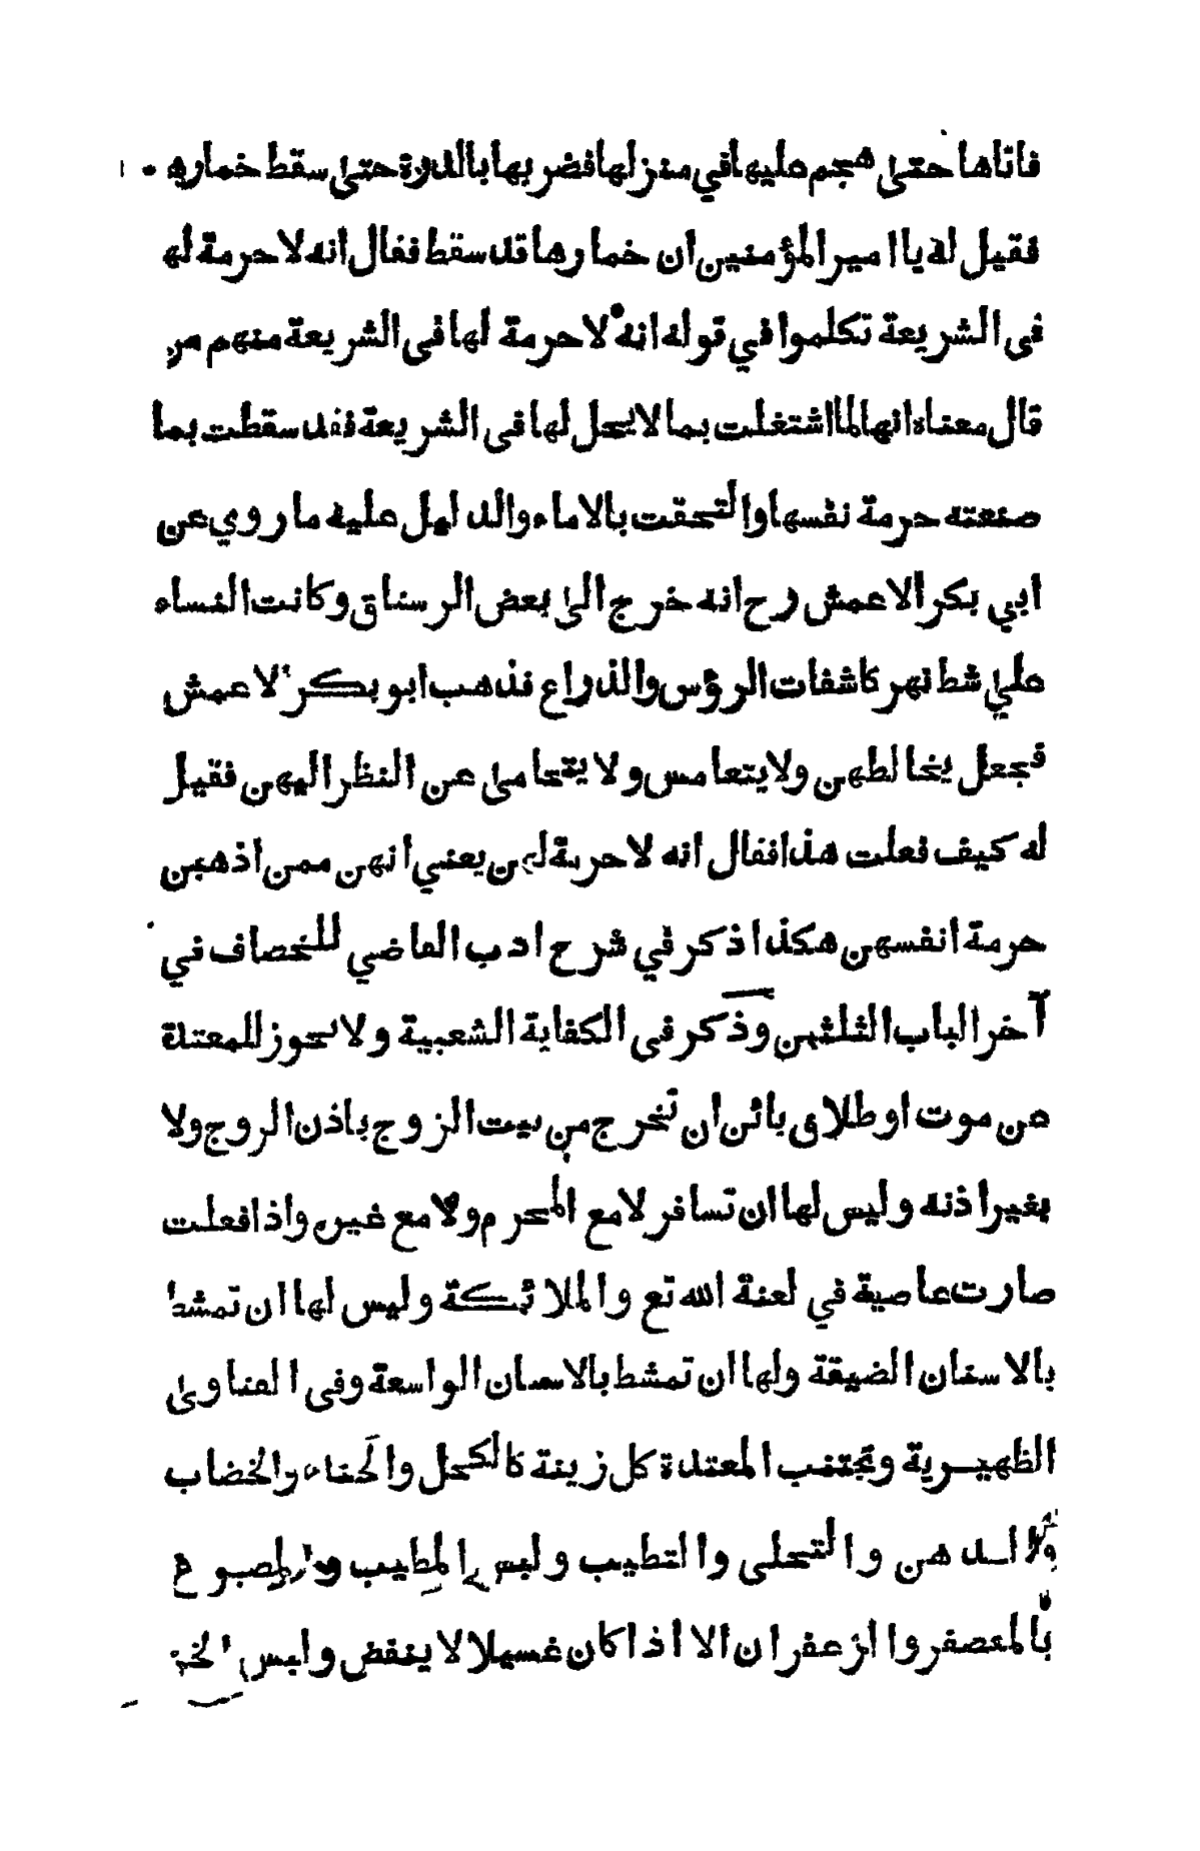 فاتاها حتى هجم عليها في منزلها فضربها بالدرة حتى سقط خمارها
فقيل له يا امير المؤمنين ان خمارها قد سقط فقال انه لا حرمة لها
في الشريعة تكلموا في قوله انه لا حرمة لها في الشريعة منهم من
قال معناه انها لما اشتغلت بما لا يحل لها في الشريعة فقد سقطت بما
صنعته حرمة نفسها والتحقت بالاماء والدليل عليه ما روي عن
ابي بكر الاعمش رح انه خرج الى بعض الرستاق وكانت النساء
على شط نهر كاشفات الرؤس والذراع فذهب ابو بكر الاعمش
فجعل يخالطهن ولا يتعامس ولا يتحامى عن النظر اليهن فقيل
له كيف فعلت هذا فقال انه لا حرمة لهن يعني انهن ممن اذهبن
حرمة انفسهن هكذا ذكر في شرح ادب القاضي للخصاف في
آخر الباب الثلثين وذكر في الكفاية الشعبية ولا يجوز للمعتدة
عن موت او طلاق بائن ان تخرج من بيت الزوج باذن الزوج ولا
بغير اذنه وليس لها ان تسافر لا مع المحرم ولا مع غيره واذا فعلت
صارت عاصية في لعنة الله تع والملائكة وليس لها ان تمشط
بالاسنان الضيقة ولها ان تمشط بالاسنان الواسعة وفي الفتاوى
الظهيرية وتجتنب المعتدة كل زينة كالكحل والحناء والخضاب
والدهن والتحلى والتطيب ولبس المطيب والمصبوغ
بالمعصفر والزعفران الا اذا كان غسيلا لا ينفض ولبس